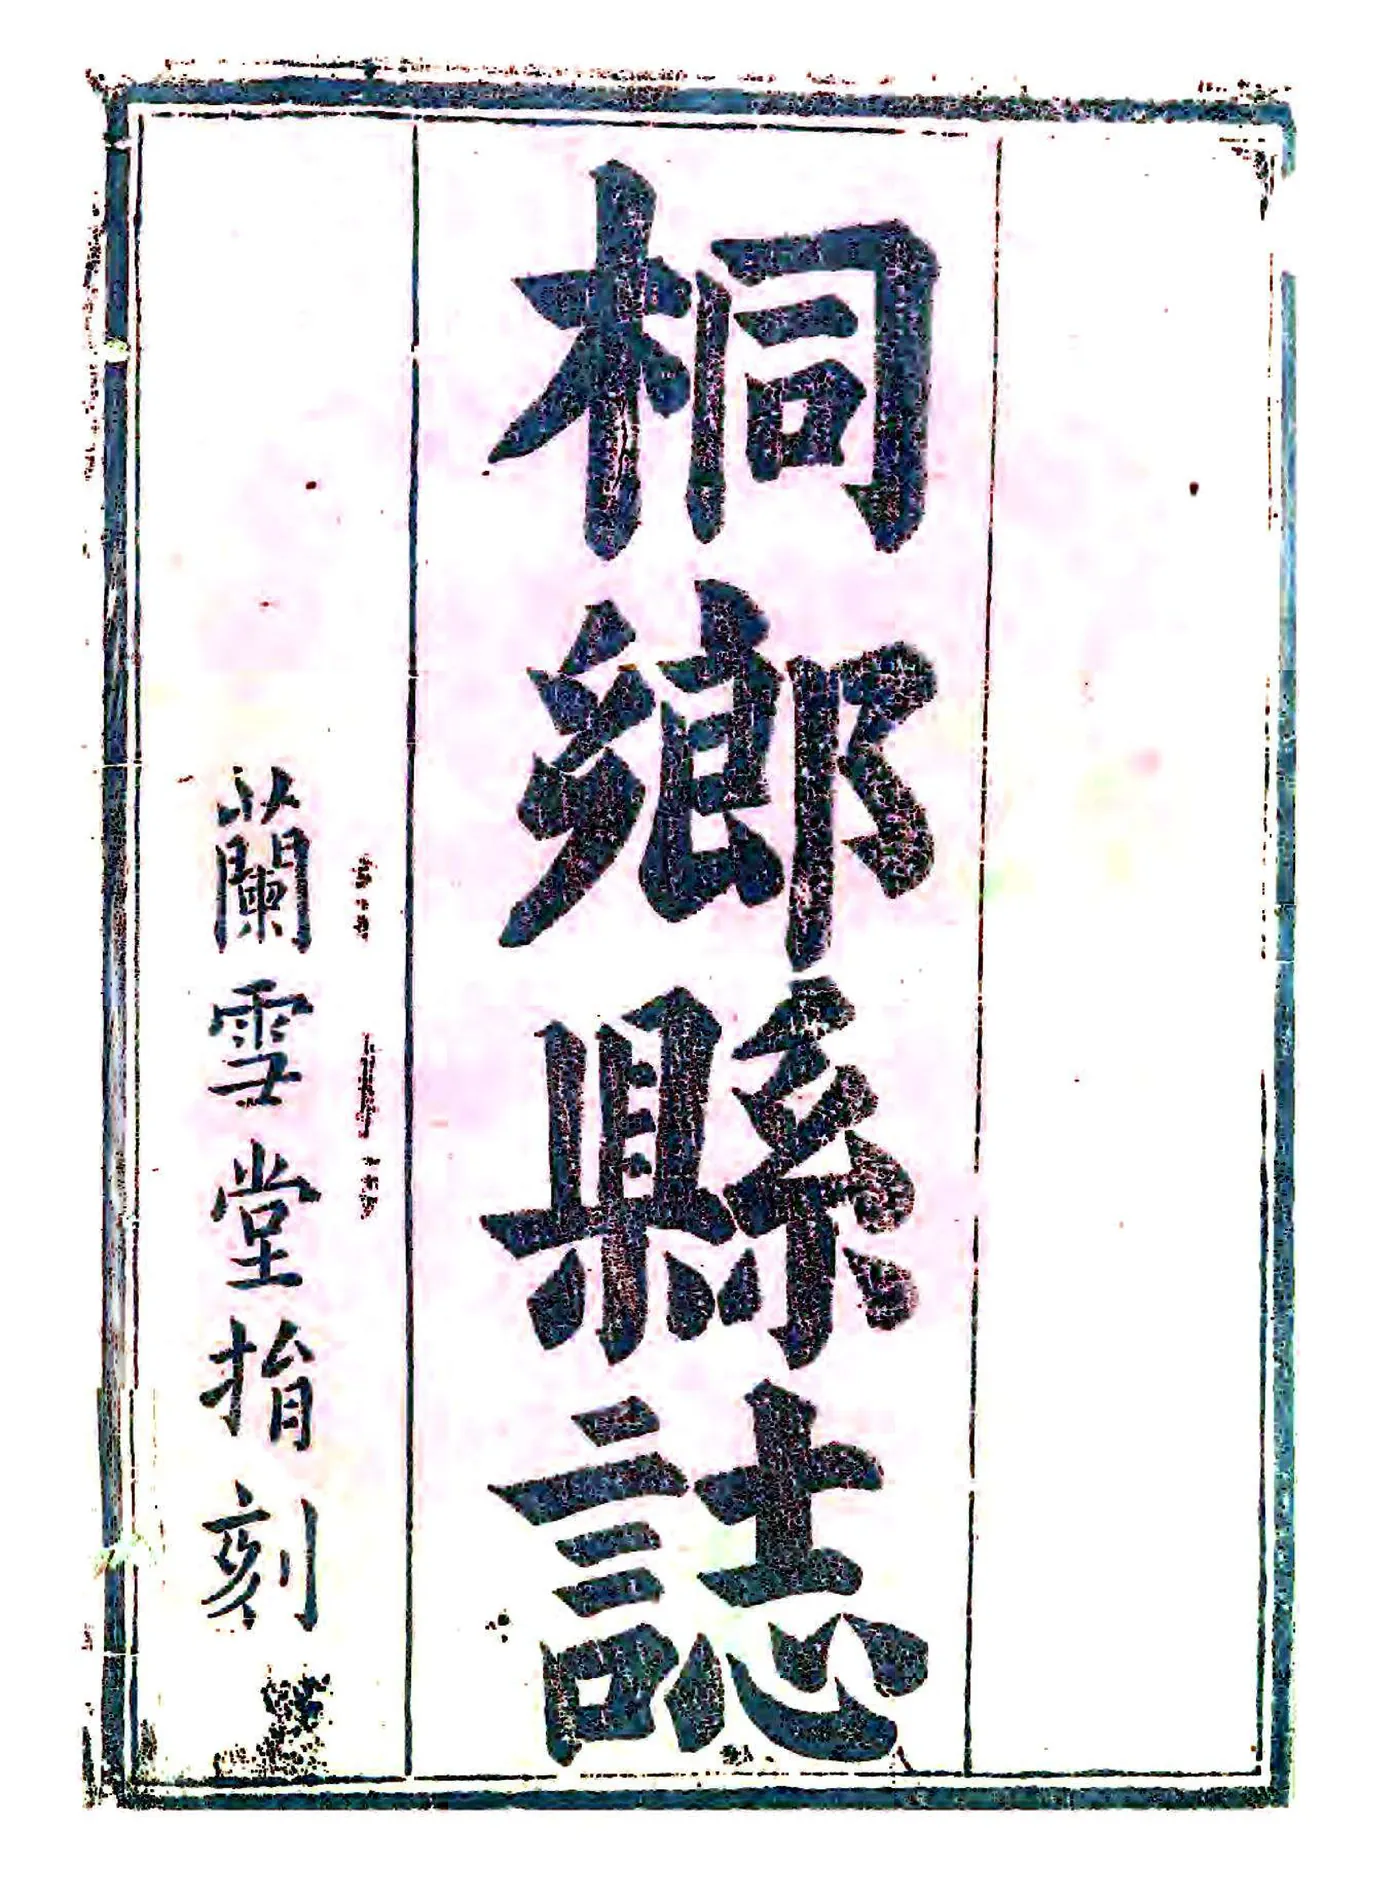 桐鄉縣誌
蘭雲堂捐刻